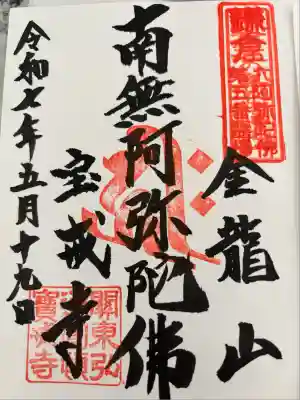 金龍山
南無阿弥陀佛
宝戒寺
令和七年五月十九日
鎌倉